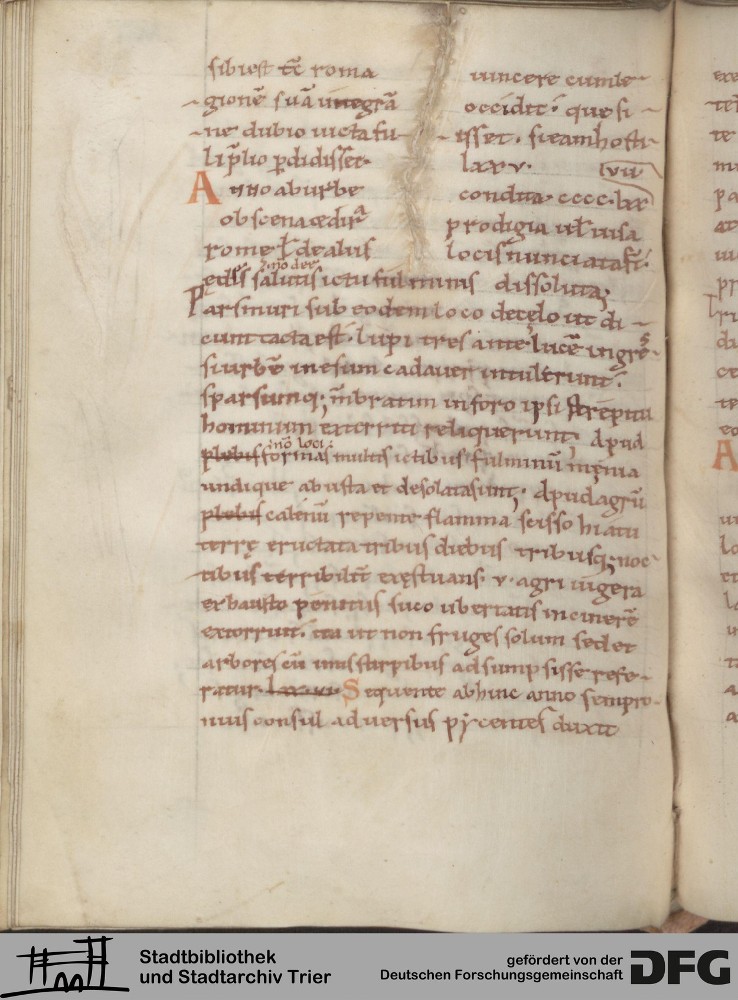 sibi est tc̄ roma uincere cum le
gionē suā integrā occidit· que si
ne dubio uicta fu isset· si eam hosti
li p̄lio ꝑdidisset· lxxv·
VII
Anno ab urbe condita cccc·lxx
obscena ac dira prodigia ul̄ uisa
rome ul̄ de aliis locis nunciata
edes salutis ictu fulminis dissoluta;
Pars muri sub eodem loco de celo ut di
cunt tacta est· lupi tres ante lucē ingres
si urbē in esum cadauer intulerunt·
sparsumq; mēbratim in foro ipsi strepitu
hominum exterriti reliquerunt; Apud
nō loci
formas multis ictibus fulminū męnia
undique abusta et desolata sunt· Apud agrū
calenū repente flamma scisso hiatu
terrę eructata tribus diebus tribusq; noc
tibus terribilit̄ exęstuans v· agri iugera
exhausto penitus suco ubertatis in cinerē
extorruit· ita ut non fruges solum sed et
arbores cū imis stirpibus adsumpsisse refe
ratur· Sequente abhinc anno sempro
nius consul aduersus pycentes duxit
Stadtbibliothek
und Stadtarchiv Trier
gefördert von der
Deutschen Forschungsgemeinschaft
DFG